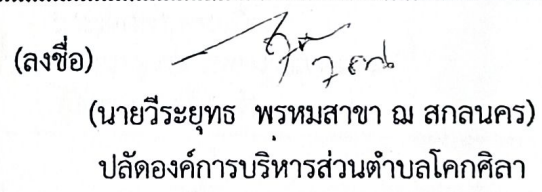 (ลงชื่อ)
(นายวีระยุทธ พรหมสาขา ณ สกลนคร)
ปลัดองค์การบริหารส่วนตำบลโคกศิลา